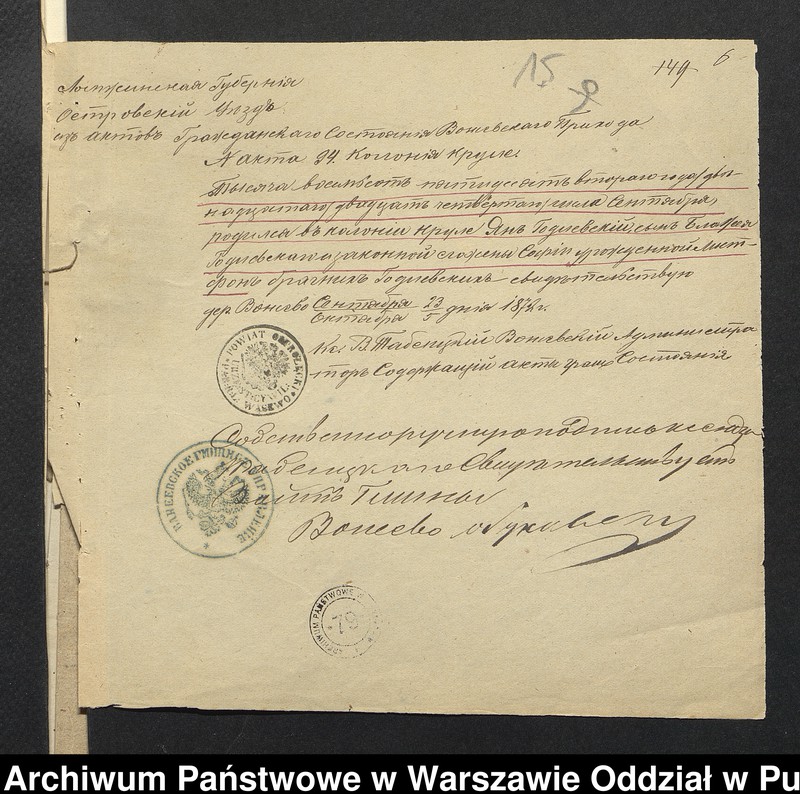 15
149
6
Ломжинская Губернія
Островскій Уѣздъ
изъ актовъ Гражданскаго Состоянія Вонсевскаго Прихода
N акта 94. Колонія Круле.
Тысяча восемьсотъ пятьдесятъ втораго года
двадцать четвертаго числа Сентября
родился въ колоніи Круле Янъ Годлевскій сынъ
Годлевскаго и законной его жены Софіи урожденной
Годлевскихъ свидѣтельствую
дер Вонсево Сентября 23 / Октября 5 дня 187 г.
Кс. В. Табенцкій Вонсевскій Администра
торъ Содержащій акты гражд Состоянія
POWIAT OSTROŁĘCKI
WĄSEWO
Собственноручную подпись ксендза
Табенцкаго Свидѣтельствуетъ
Войтъ Гмины
Вонсево
ГМИННОЕ УПРАВЛЕНІЕ
ARCHIWUM PAŃSTWOWE
79
Archiwum Państwowe w Warszawie Oddział w Pu